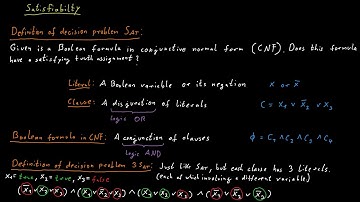 Satisfiabilty
Definition of decision problem SAT:
Given is a Boolean formula in conjunctive normal form (CNF). Does this formula
have a satisfying truth assignment?
Literal: A Boolean variable or its negation x or x̅
Clause: A disjunction of literals C = x₁ ∨ x̅₂ ∨ x₃
logic OR
Boolean formula in CNF: A conjunction of clauses ϕ = C₁ ∧ C₂ ∧ C₃ ∧ C₄
logic AND
Definition of decision problem 3SAT: Just like SAT, but each clause has 3 literals.
x₁=true, x₂=true, x₃=false (each of which involving a different variable)
(x̅₁ ∨ x₂ ∨ x₃) ∧ (x₁ ∨ x̅₂ ∨ x₃) ∧ (x₁ ∨ x₂ ∨ x₃) ∧ (x̅₁ ∨ x̅₂ ∨ x̅₃)